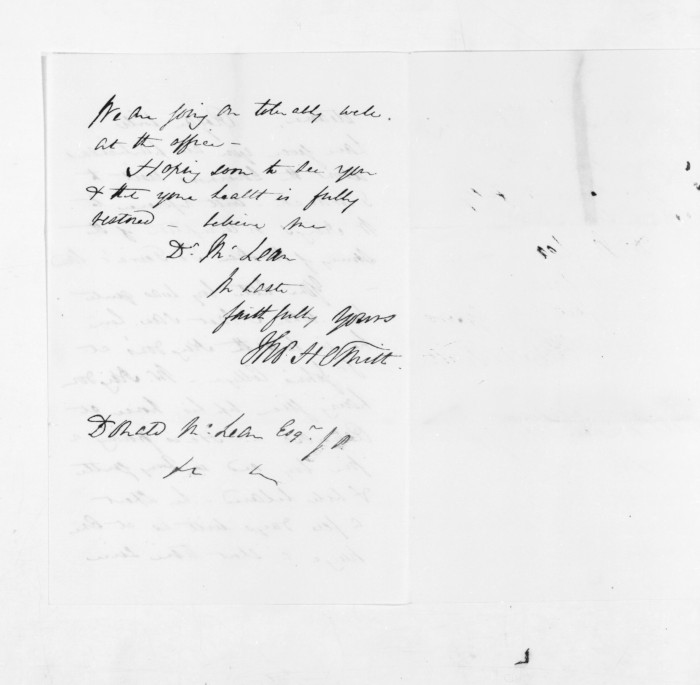 We are going on tolerably well.
at the office –
Hoping soon to see you
& that your health is fully
restored – believe me
Dr. McLean
In haste
faithfully yours
Thos. H. Smith.
Donald McLean Esqr. J. P.
&c &c